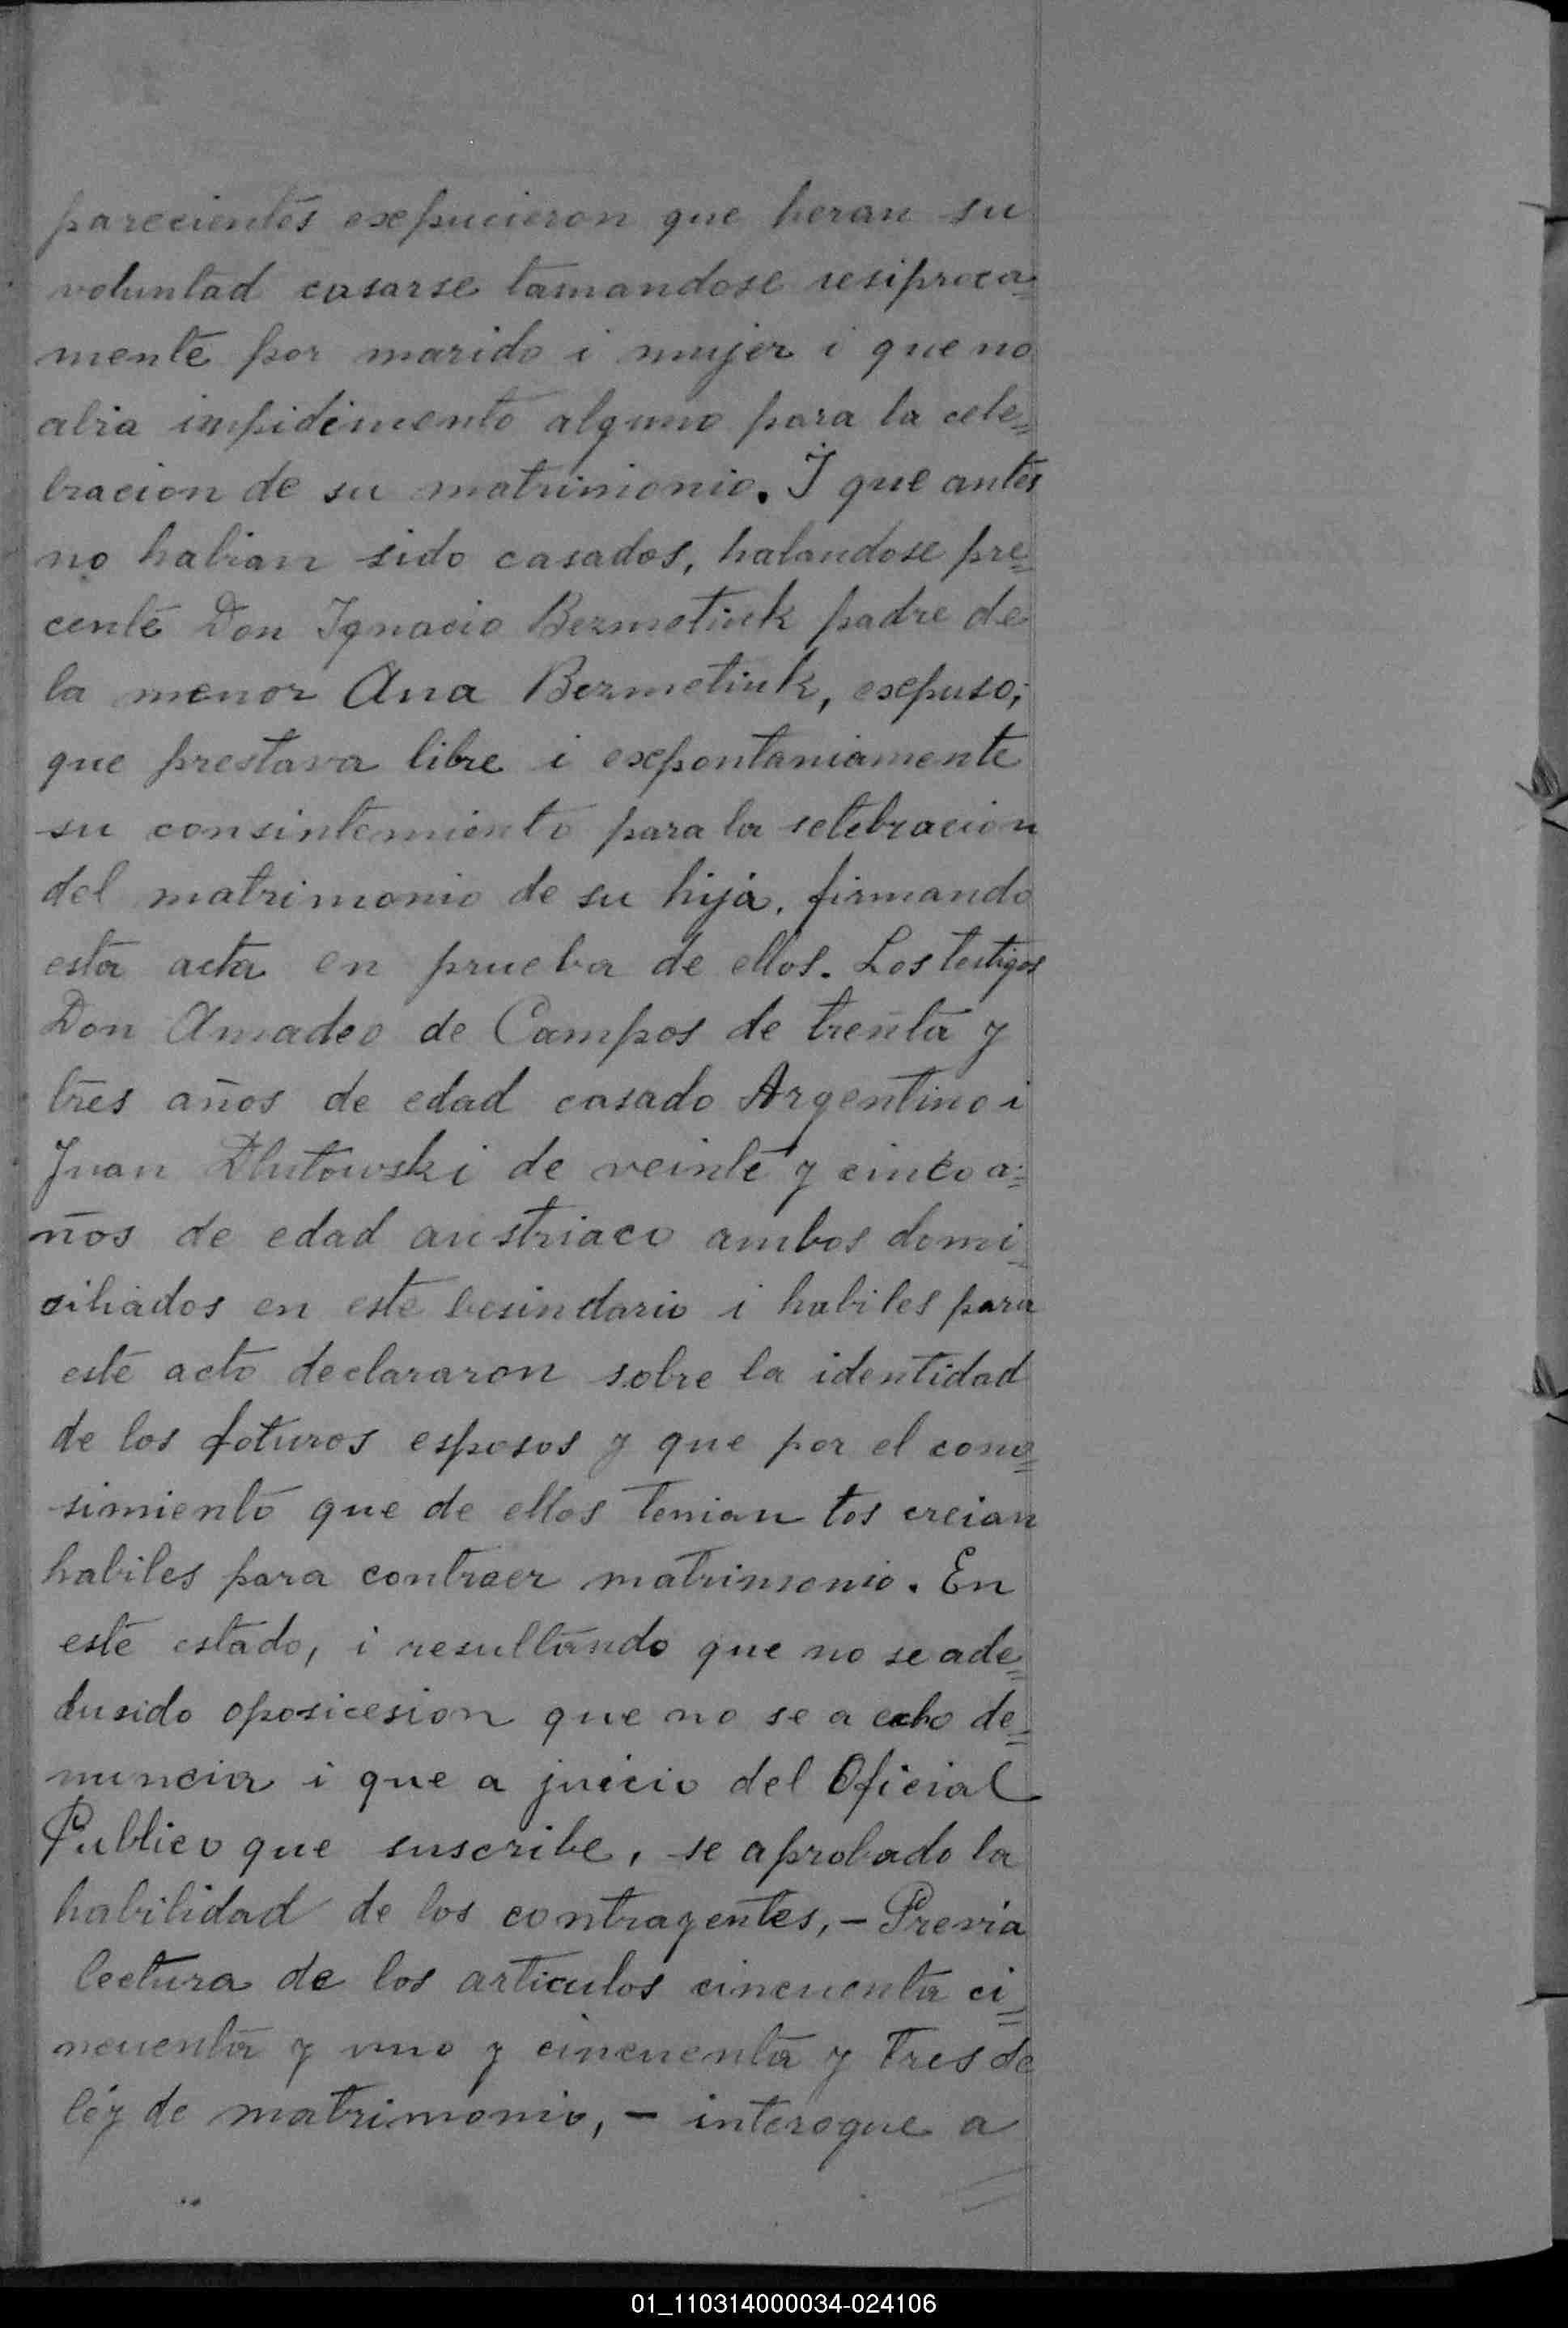 parecientes exepucieron que heran su
voluntad casarse tamandose resiproca=
mente por marido i mujer i que no
abia impidimento alguno para la cele=
bracion de su matrimonio. I que antes
no habian sido casados, halandose pre=
cente Don Ignacio Bezmetiuk padre de
la menor Ana Bezmetiuk, exepuso;
que prestava libre i exepontaniamente
su consintemiento para la selebracion
del matrimonio de su hija. firmando
esta acta en prueba de ellos. Los testigos
Don Amadeo de Campos de treinta y
tres años de edad casado Argentino i
Juan Dlutowski de veinte y cinco a=
ños de edad austriaco ambos domi=
siliados en este besindario i habiles para
este acto declararon sobre la identidad
de los foturos esposos y que por el cono=
simiento que de ellos tenian los creian
habiles para contraer matrimonio. En
este estado, i resultando que no se ade=
dusido oposicesion que no se a echo de=
nuncia i que a juicio del Oficial
Publico que suscribe, se aprobado la
habilidad de los contragentes, - Previa
lectura de los articulos cincuenta ci=
ncuenta y uno y cincuenta y tres de
léy de matrimonio, - interogue a
01_110314000034-024106